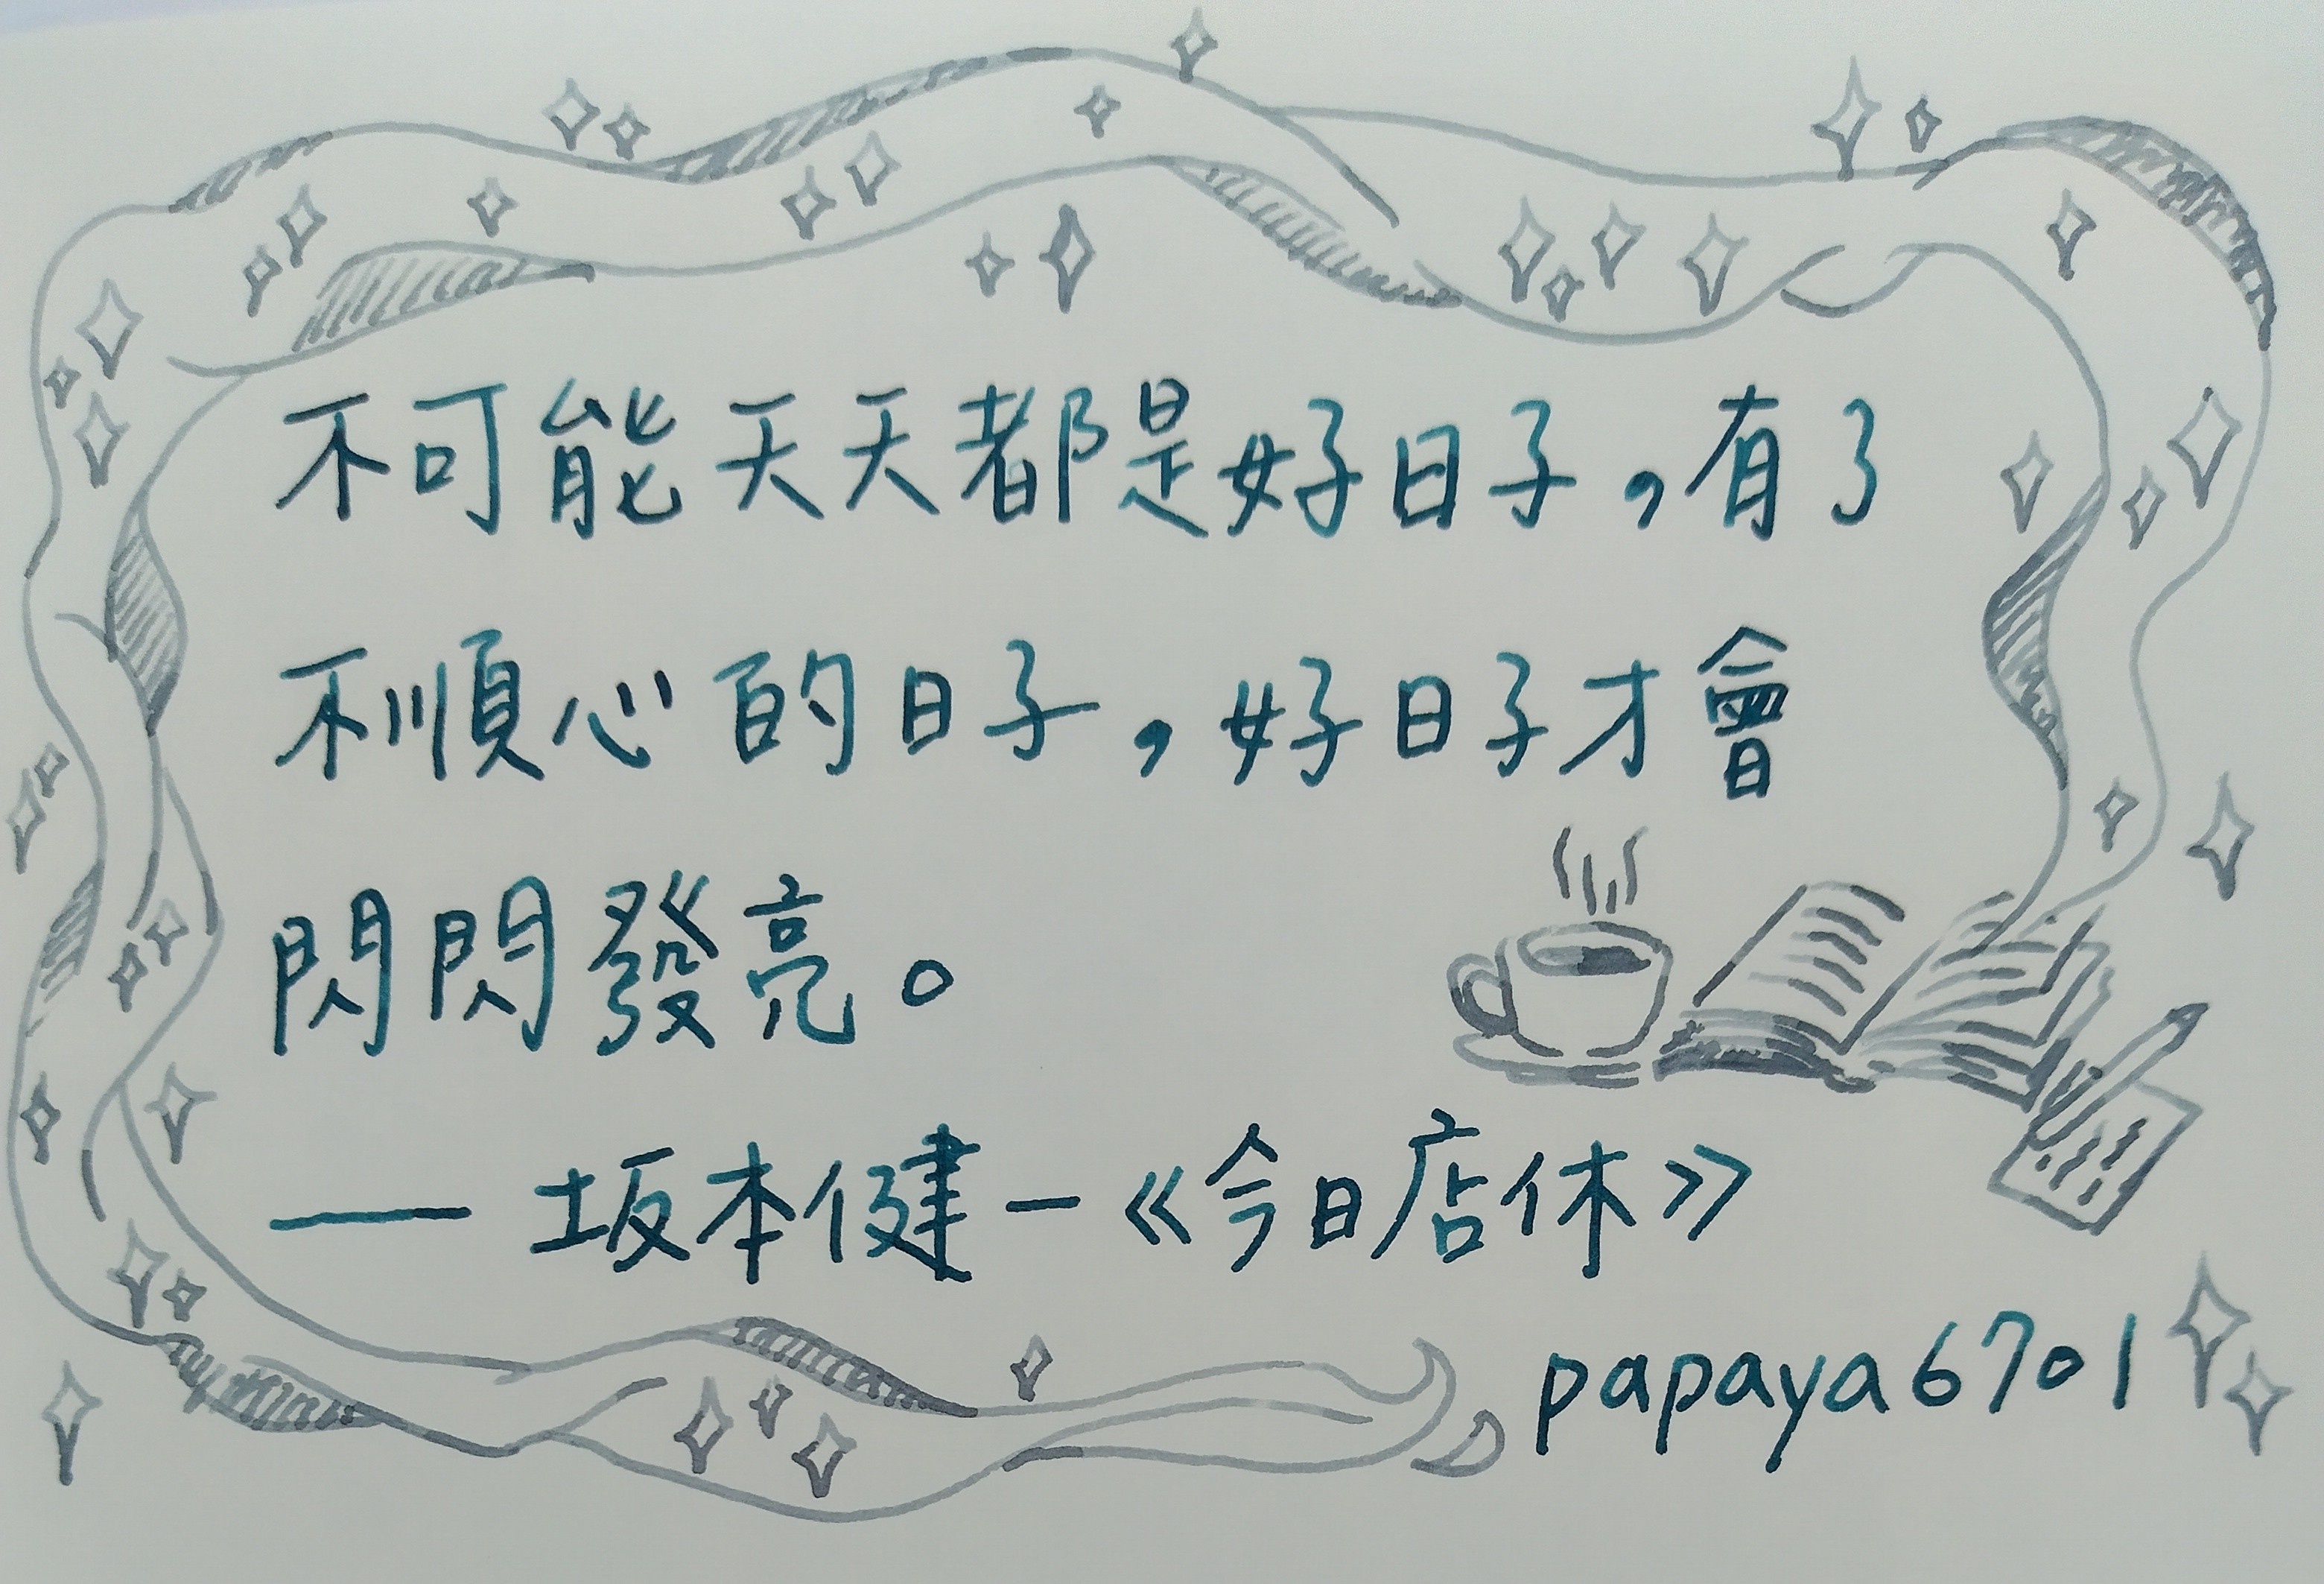 不可能天天都是好日子，有了
不順心的日子，好日子才會
閃閃發亮。
—— 坂本健一《今日店休》
papaya6701